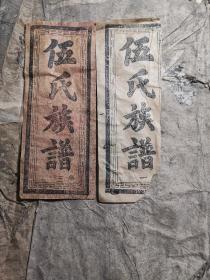 伍氏族譜
伍氏族譜